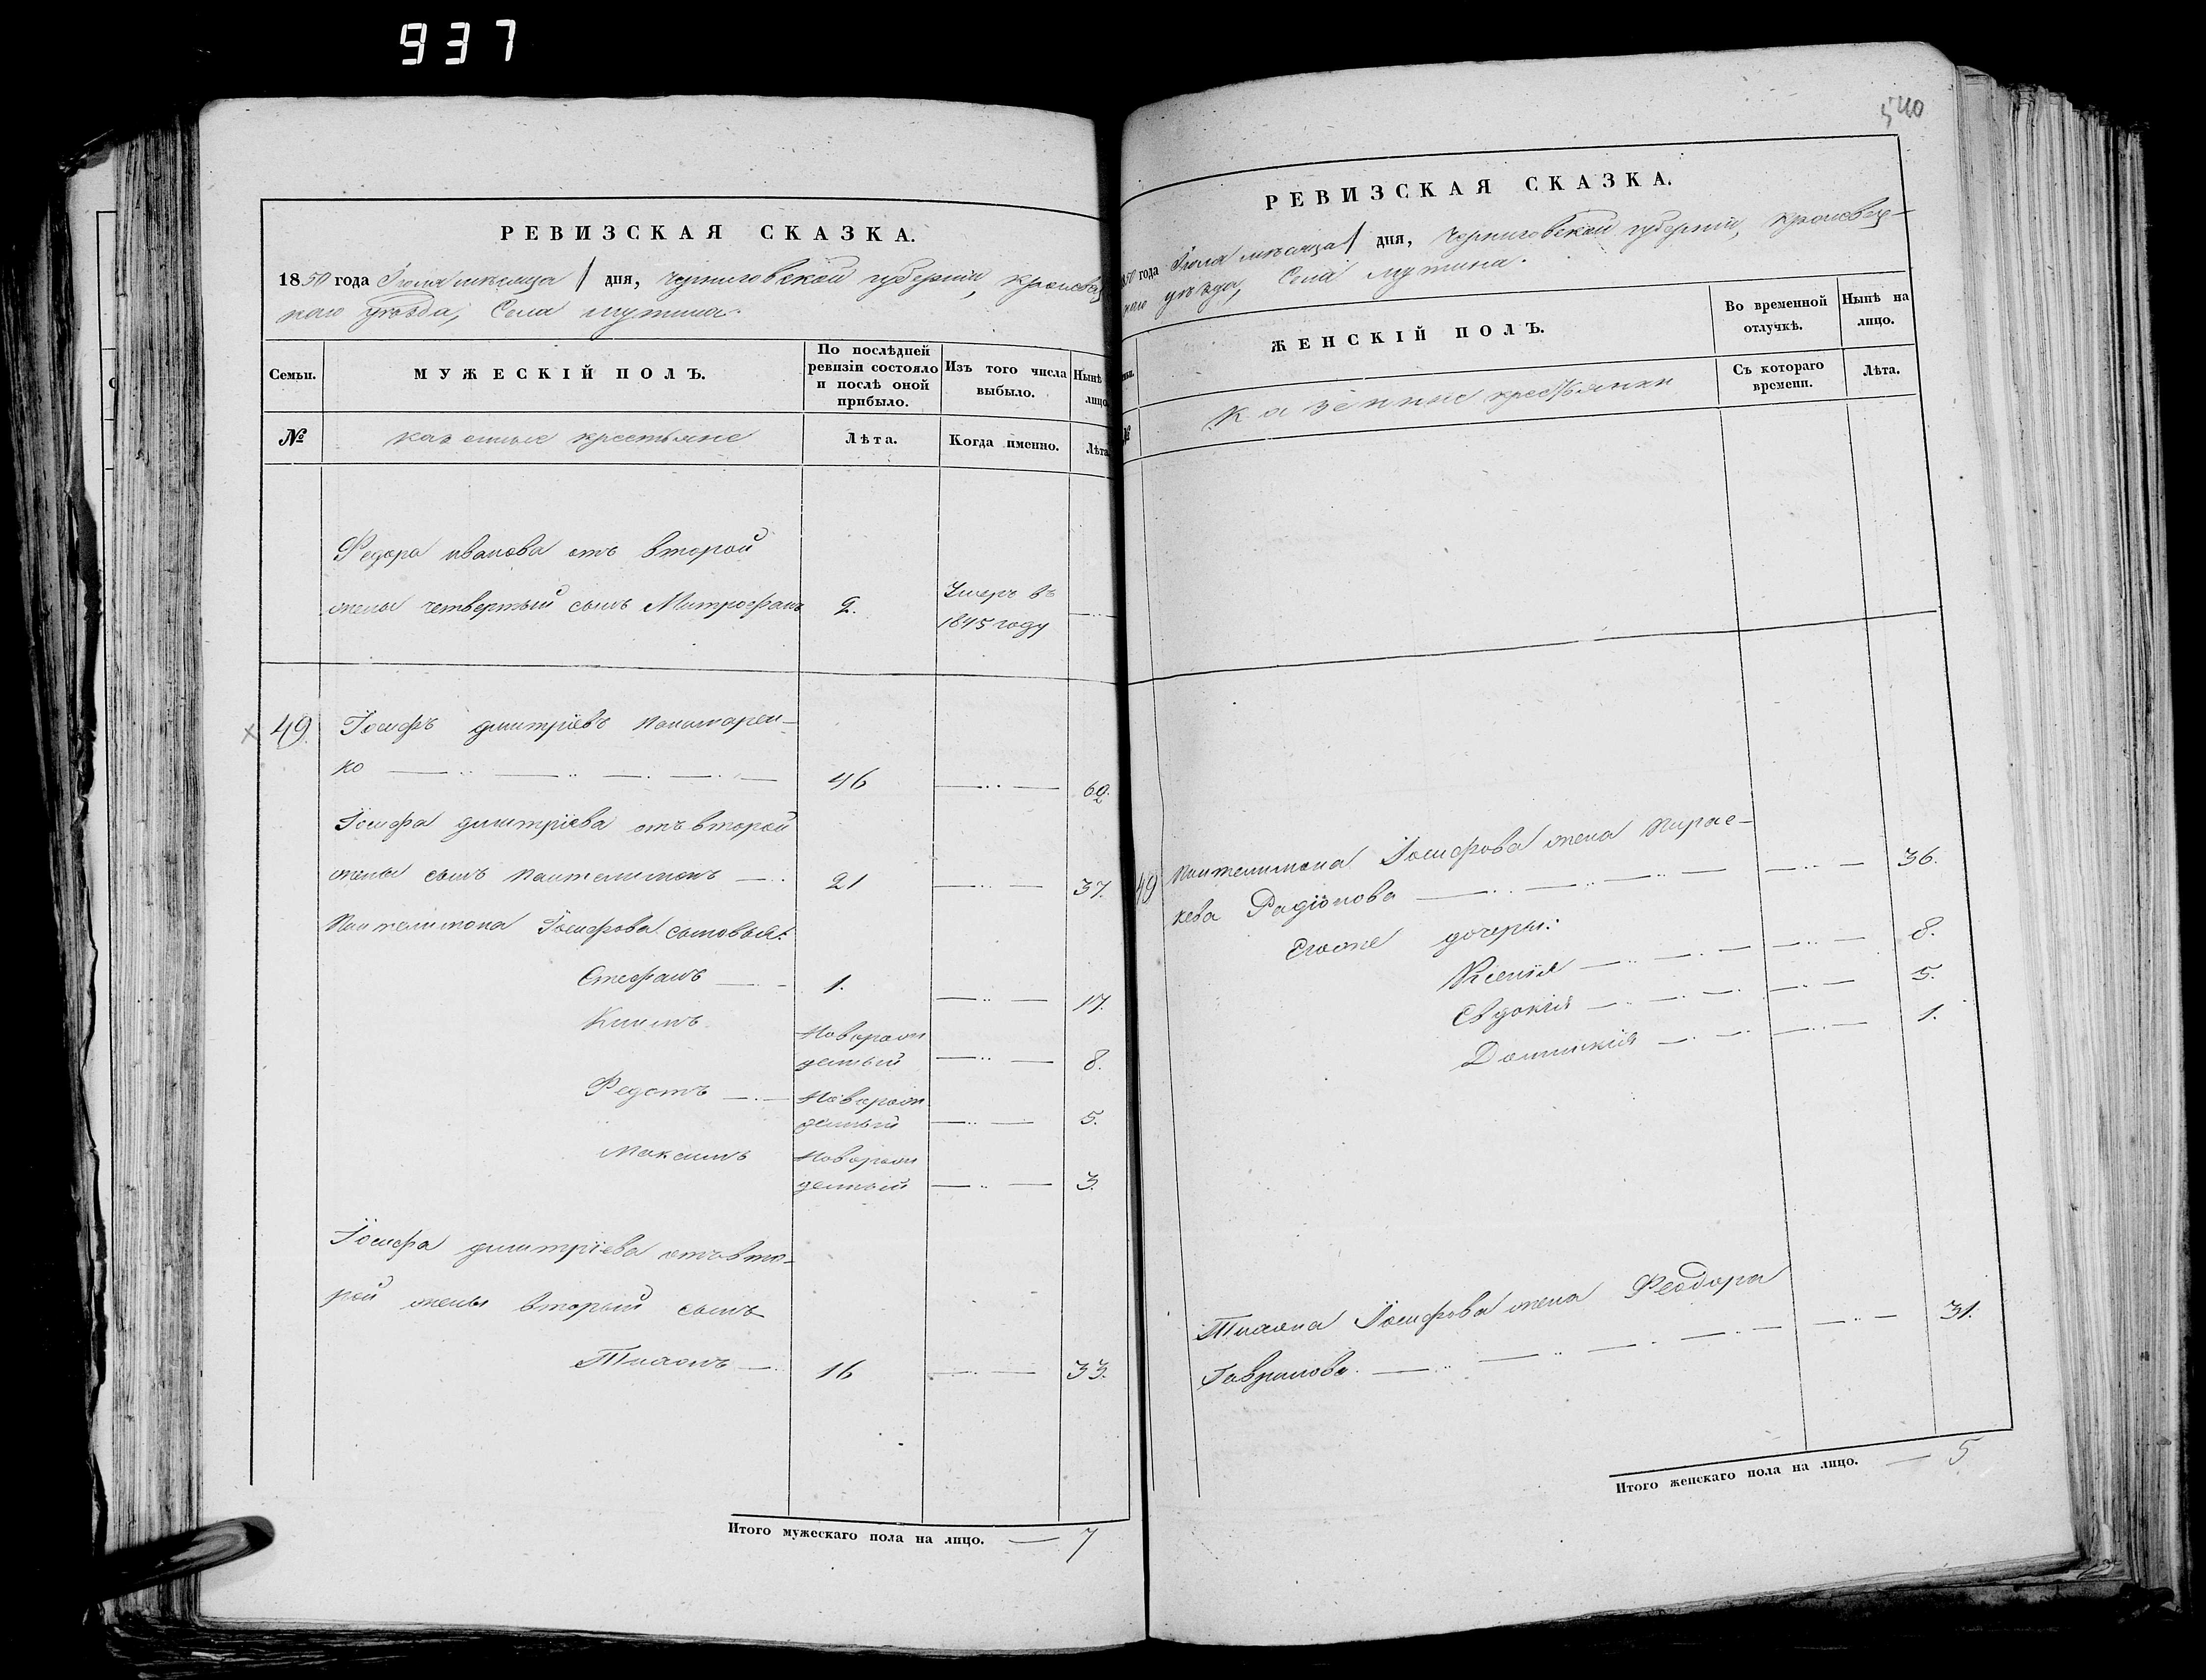 937
540
РЕВИЗСКАЯ СКАЗКА.
1850 года Іюля мѣсяца 1 дня, Черниговской губерніи, Кролевец
каго уѣзда, Села Мутина.
Семьи.
МУЖЕСКІЙ ПОЛЪ.
По послѣдней
ревизіи состояло
и послѣ оной
прибыло.
Изъ того числа
выбыло.
Нынѣ
лицо
№
казенные крестьяне
Лѣта.
Когда именно.
Лѣта
Федора иванова отъ второй
жены четвертый сынъ Митрофанъ 2. Умеръ въ
1845 году
49. Іосифъ дмитріевъ пономарен-
ко 46 62.
Іосифа дмитріева отъ второй
жены сынъ пантелимонъ 21 37.
Пантелимона Іосифова сыновья:
Стефанъ 1. 17.
Климъ Новорож
денный 8.
Федотъ Новорож
денный 5.
Максимъ Новорож
денный 3.
Іосифа дмитріева отъ вто-
рой жены вторый сынъ
Тихонъ 16 33.
Итого мужескаго пола на лицо. 7
РЕВИЗСКАЯ СКАЗКА.
1850 года Іюля мѣсяца 1 дня, Черниговской губерніи, Кролевец-
каго уѣзда, Села Мутина.
ЖЕНСКІЙ ПОЛЪ.
Во временной
отлучкѣ.
Нынѣ на
лицо.
№
Казенные крестьянки
Съ котораго
времени.
Лѣта.
49 Пантелимона Іосифова жена Парас-
кева Радіонова 36.
Егоже дочери:
Ксенія 8.
Евдокія 5.
Домникія 1.
Тихона Іосифова жена Феодора
Гаврилова 31.
Итого женскаго пола на лицо. 5